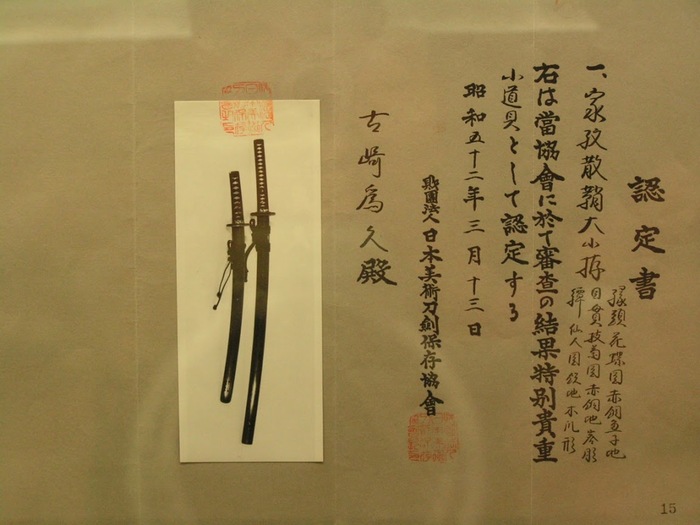 認定書
一、家紋散鞘大小拵
縁頭 花蝶図 赤銅魚子地
目貫 枝菊図 赤銅地容彫
鐔 仙人図 鉄地木瓜形
右は當協會に於て審査の結果特別貴重
小道具として認定する
昭和五十二年三月十三日
財團法人日本美術刀劍保存協會
古崎為久殿
15